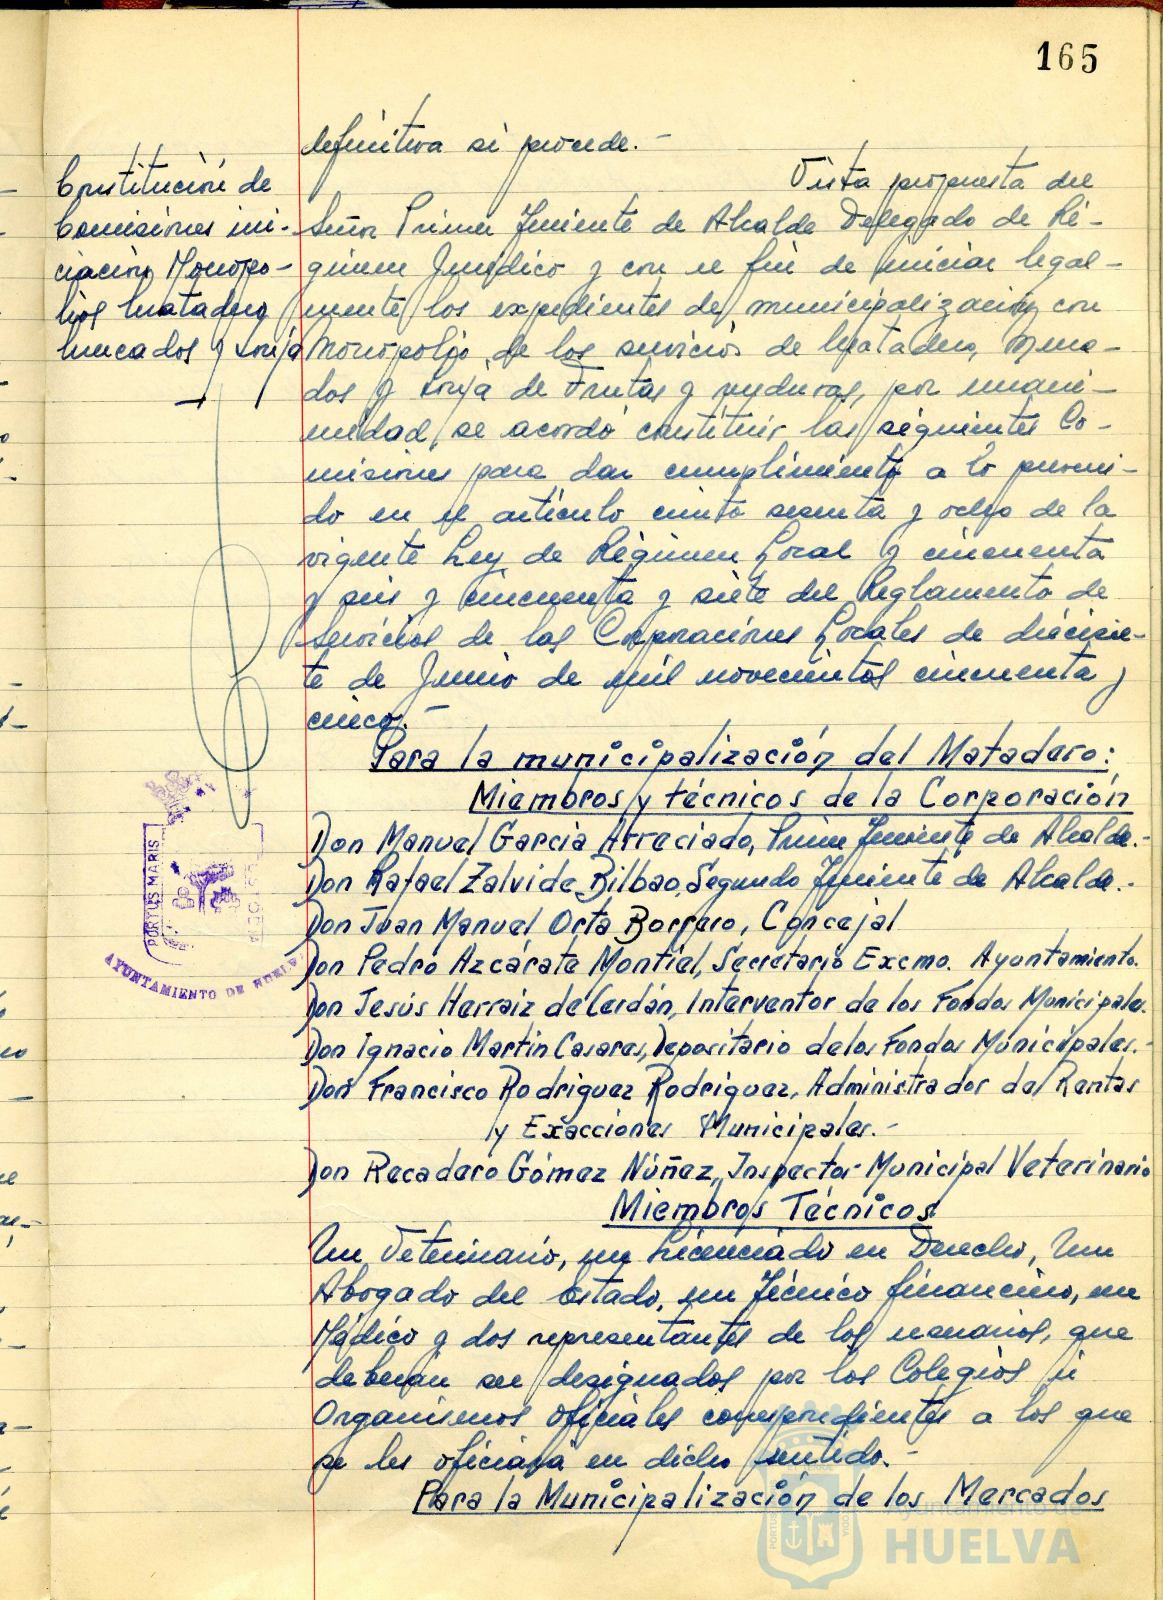 165
definitiva si procede.-
Constitución de
Comisiones ini-
ciación Monopo-
lios Matadero
Mercados y Lonja
Vista propuesta del
Señor Primer Teniente de Alcalde Delegado de Ré-
gimen Jurídico y con el fin de iniciar legal-
mente los expedientes de municipalización con
Monopolio de los servicios de Matadero, Merca-
dos y Lonja de Frutas y verduras, por unani-
midad, se acordó constituir las siguientes Co-
misiones para dar cumplimiento a lo preveni-
do en el artículo ciento sesenta y ocho de la
vigente Ley de Régimen Local y cincuenta
y seis y cincuenta y siete del Reglamento de
Servicios de las Corporaciones Locales de diecisie-
te de Junio de mil novecientos cincuenta y
cinco.-
Para la municipalización del Matadero:
Miembros y técnicos de la Corporación
Don Manuel García Arreciado, Primer Teniente de Alcalde.-
Don Rafael Zalvide Bilbao, Segundo Teniente de Alcalde.-
Don Juan Manuel Orta Borrero, Concejal
Don Pedro Azcárate Montiel, Secretario Excmo. Ayuntamiento.
Don Jesús Herraiz de Cerdán, Interventor de los Fondos Municipales.
Don Ignacio Martín Casares, Depositario de los Fondos Municipales.-
Don Francisco Rodriguez Rodriguez, Administrador de Rentas
y Exacciones Municipales.-
Don Recadero Gómez Núñez, Inspector Municipal Veterinario
Miembros Técnicos
Un Veterinario, un Licenciado en Derecho, Un
Abogado del Estado, un Técnico financiero, un
Médico y dos representantes de los usuarios, que
deberán ser designados por los Colegios u
Organismos oficiales correspondientes a los que
se les oficiará en dicho sentido.-
Para la Municipalización de los Mercados
PORTUS MARIS
AYUNTAMIENTO DE HUELVA
Ayuntamiento de
HUELVA